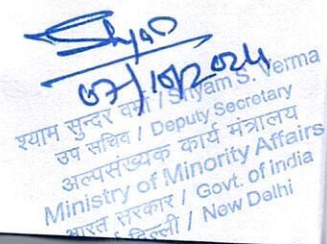 Shyam
07/10/2024
श्याम सुन्दर वर्मा / Shyam S. Verma
उप सचिव / Deputy Secretary
अल्पसंख्यक कार्य मंत्रालय
Ministry of Minority Affairs
भारत सरकार / Govt. of India
दिल्ली / New Delhi